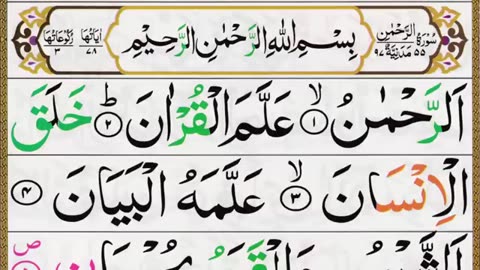 سُوْرَةُ الرَّحْمٰنِ ٥٥ مَدَنِيَّةٌ ٩٧ بِسْمِ اللهِ الرَّحْمٰنِ الرَّحِيْمِ اٰيَاتُهَا ٧٨ رُكُوْعَاتُهَا ٣
اَلرَّحْمٰنُ ۙ ﴿١﴾ عَلَّمَ الْقُرْاٰنَ ؕ ﴿٢﴾ خَلَقَ
الْاِنْسَانَ ۙ ﴿٣﴾ عَلَّمَهُ الْبَيَانَ ﴿٤﴾